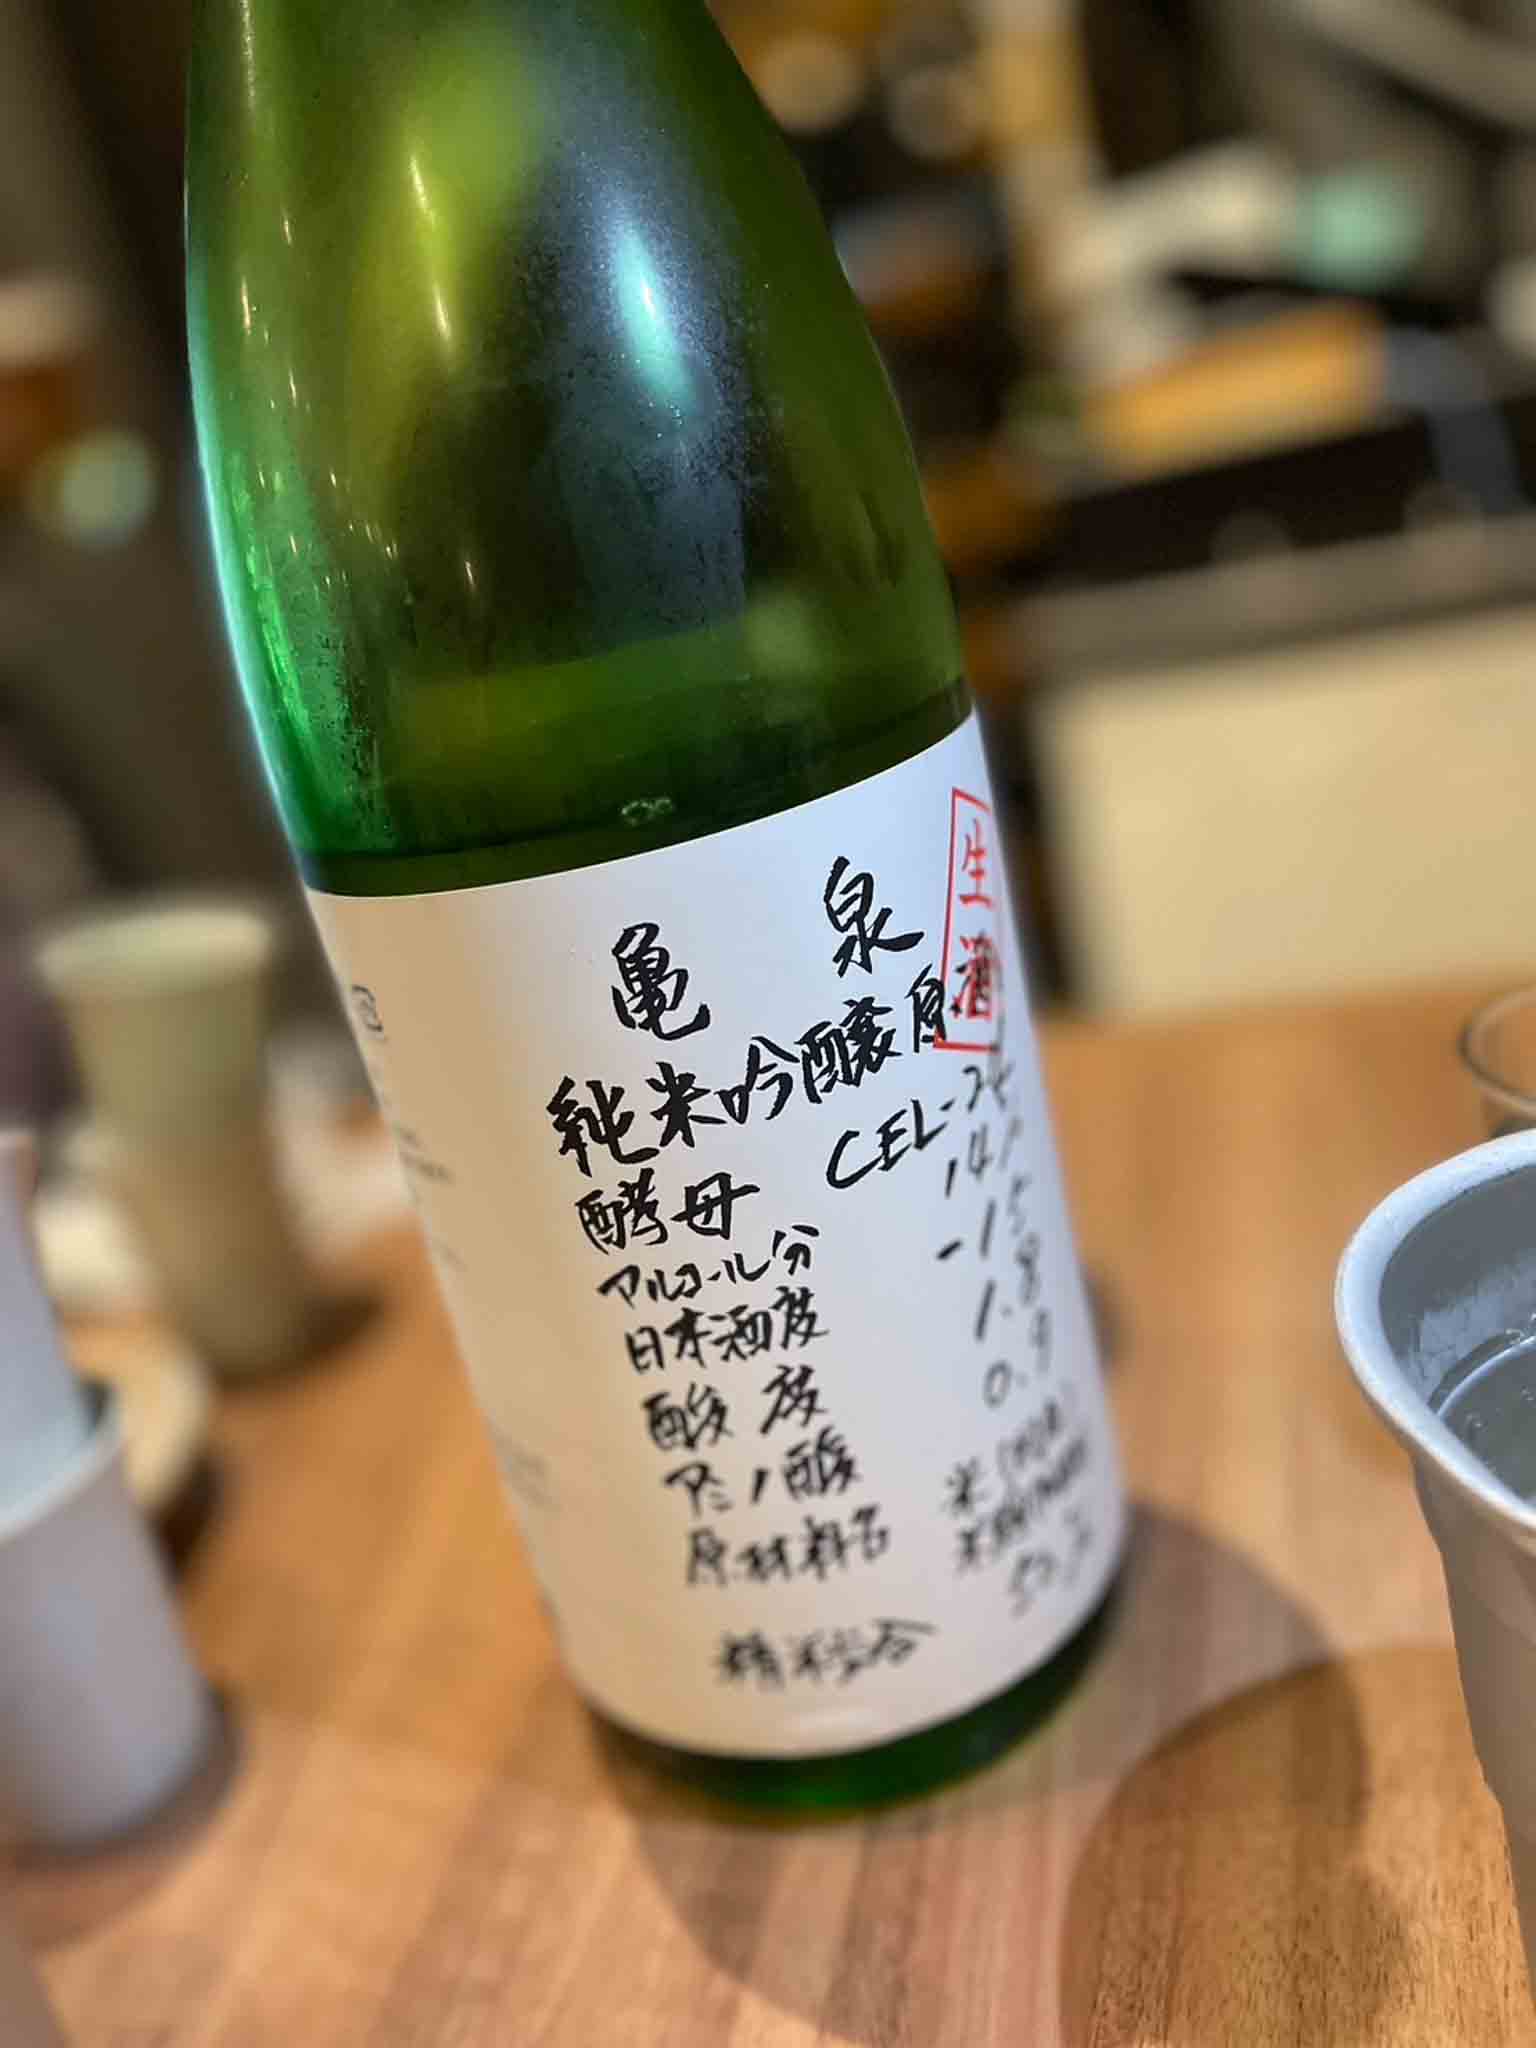 生酒
亀 泉
純米吟醸原
酵母 CEL-24
アルコール分 14
日本酒度 -15
酸度 1.8
アミノ酸 0.9
原材料名 米
米
精米歩合 50